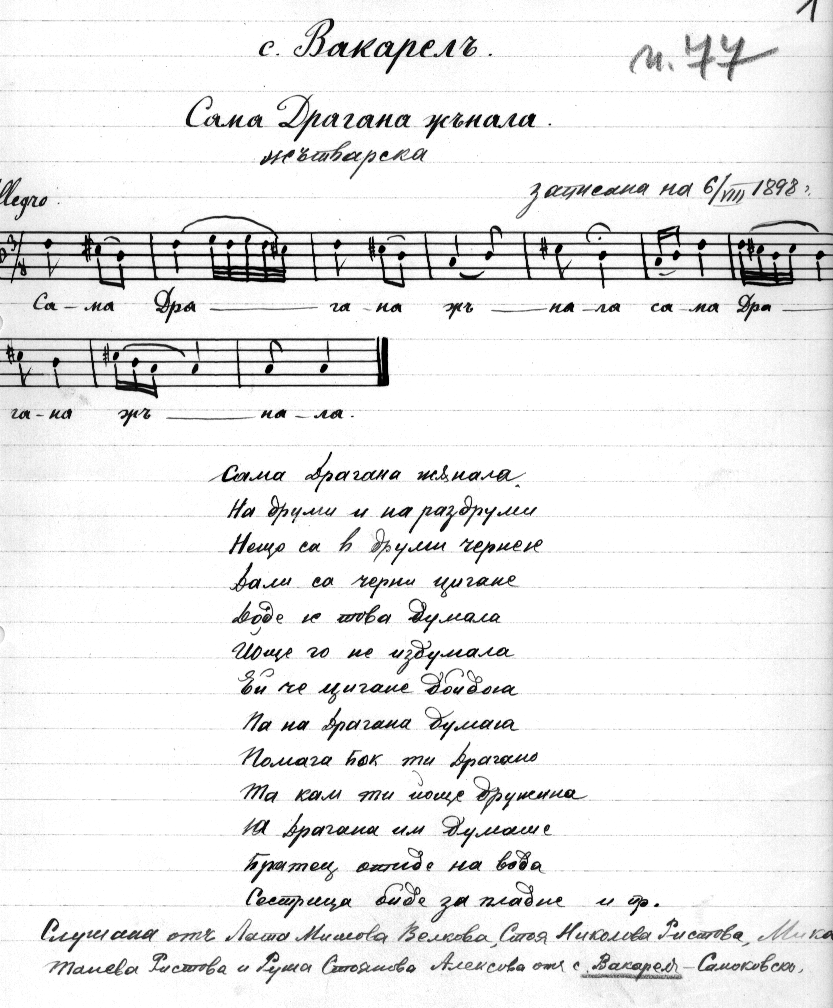 1
с. Вакарелъ.
н. 77
Сама Драгана жънала.
жътварска
Allegro.
записана на 6/VIII 1898 г.
Са – ма Дра — га – на жъ — на – ла са – ма Дра —
га – на жъ — на – ла.
Сама Драгана жѫнала
На друми и на раздруми
Нещо са в друми чернеје
Дали са черни цигане
Доде је това думала
Йоще го не издумала
Ей че цигане дойдоја
Па на Драгана думаја
Помага Бок ти Драгано
Та кам ти йоще дружина
Ја Драгана им думаше
Братец отиде на вода
Сестрица биде за пладне и пр.
Слушана отъ Лата Мимова Велкова, Стоя Николова Ристова,
Танева Ристова и Руша Стоянова Алексова отъ с. Вакарелъ – Самоковско.